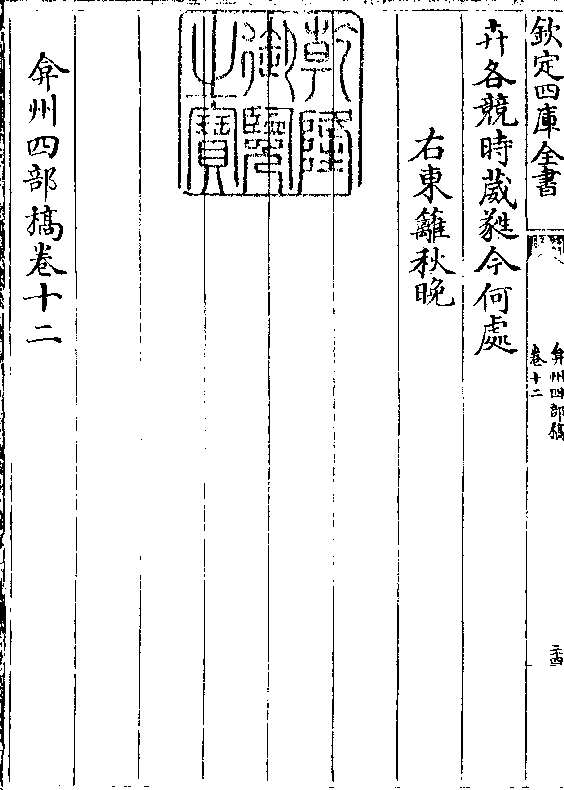 欽定四庫全書
弇州四部稿
卷十二
二十四
卉各競時葳蕤今何處
右東籬秋晚
乾隆御覽之寶
弇州四部稿卷十二